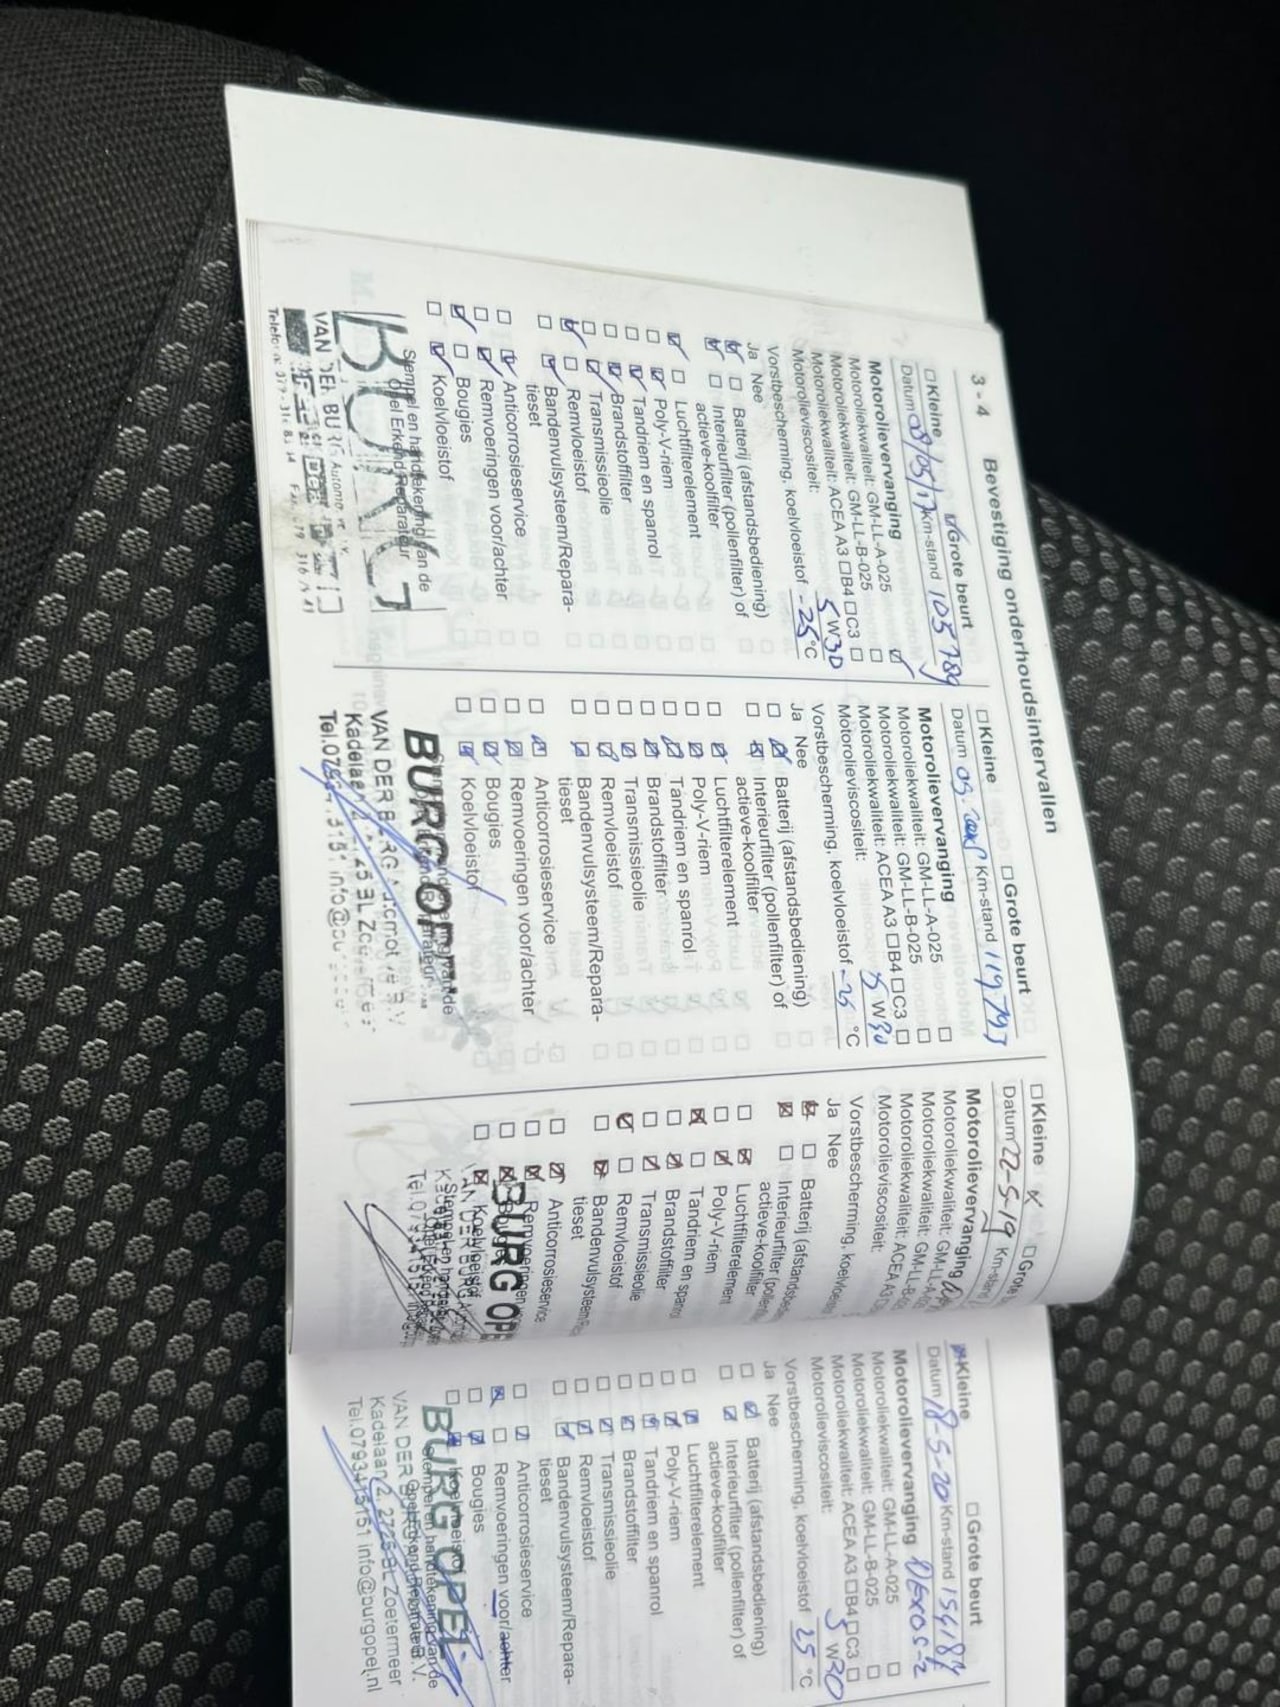 3 - 4 Bevestiging onderhoudsintervallen
□ Kleine ☑ Grote beurt
Datum 08/05/17 Km-stand 105789
Motorolievervanging
Motoroliekwaliteit: GM-LL-A-025 ☑
Motoroliekwaliteit: GM-LL-B-025 □
Motoroliekwaliteit: ACEA A3 □ B4 □ C3 □
Motorolieviscositeit: 5 W 30
Vorstbescherming, koelvloeistof -25 °C
Ja Nee
☑ □ Batterij (afstandsbediening)
☑ □ Interieurfilter (pollenfilter) of
actieve-koolfilter
☑ □ Luchtfilterelement
□ ☑ Poly-V-riem
□ ☑ Tandriem en spanrol
□ ☑ Brandstoffilter
□ ☑ Transmissieolie
☑ □ Remvloeistof
□ ☑ Bandenvulsysteem/Repara-
tieset
□ ☑ Anticorrosieservice
□ ☑ Remvoeringen voor/achter
☑ □ Bougies
□ ☑ Koelvloeistof
Stempel en handtekening van de
Opel Erkend Reparateur
BURG
VAN DER BURG
□ Kleine □ Grote beurt
Datum Km-stand
Motorolievervanging
Motoroliekwaliteit: GM-LL-A-025 □
Motoroliekwaliteit: GM-LL-B-025 □
Motoroliekwaliteit: ACEA A3 □ B4 □ C3 □
Motorolieviscositeit: 5 W 30
Vorstbescherming, koelvloeistof °C
Ja Nee
□ ☑ Batterij (afstandsbediening)
□ ☒ Interieurfilter (pollenfilter) of
actieve-koolfilter
□ ☑ Luchtfilterelement
□ ☑ Poly-V-riem
□ ☑ Tandriem en spanrol
□ ☑ Brandstoffilter
□ ☑ Transmissieolie
□ ☑ Remvloeistof
□ ☑ Bandenvulsysteem/Repara-
tieset
□ ☑ Anticorrosieservice
□ ☑ Remvoeringen voor/achter
□ ☑ Bougies
□ ☑ Koelvloeistof
BURG OPEL
VAN DER BURG
□ Kleine □ Grote
Datum 22-5-19 Km-stand
Motorolievervanging
Motoroliekwaliteit: GM-LL-A
Motoroliekwaliteit: GM-LL-B
Motoroliekwaliteit: ACEA A3
Motorolieviscositeit:
Vorstbescherming, koelvloeistof
Ja Nee
☒ □ Batterij
☒ □ Interieurfilter
actieve-koolfilter
□ ☒ Luchtfilterelement
□ ☑ Poly-V-riem
☒ □ Tandriem en spanrol
□ ☑ Brandstoffilter
□ ☑ Transmissieolie
☑ □ Remvloeistof
□ ☒ Bandenvulsysteem
tieset
□ ☑ Anticorrosieservice
□ ☑ Remvoeringen
□ ☒ Bougies
□ ☒ Koelvloeistof
BURG OPEL
☒ Kleine □ Grote beurt
Datum 18-5-20 Km-stand
Motorolievervanging Dexos-2
Motoroliekwaliteit: GM-LL-A-025 □
Motoroliekwaliteit: GM-LL-B-025 □
Motoroliekwaliteit: ACEA A3 □ B4 □ C3 □
Motorolieviscositeit: 5 W 30
Vorstbescherming, koelvloeistof 25 °C
Ja Nee
□ ☑ Batterij (afstandsbediening)
□ ☑ Interieurfilter (pollenfilter) of
actieve-koolfilter
□ ☑ Luchtfilterelement
□ ☑ Poly-V-riem
□ ☑ Tandriem en spanrol
□ ☑ Brandstoffilter
□ ☑ Transmissieolie
□ ☑ Remvloeistof
□ ☑ Bandenvulsysteem/Repara-
tieset
□ ☑ Anticorrosieservice
☒ □ Remvoeringen voor/achter
□ ☑ Bougies
□ ☑ Koelvloeistof
BURG OPEL
VAN DER BURG B.V.
Kadelaan 2, 2725 BL Zoetermeer
Tel.0793415151 info@burgopel.nl